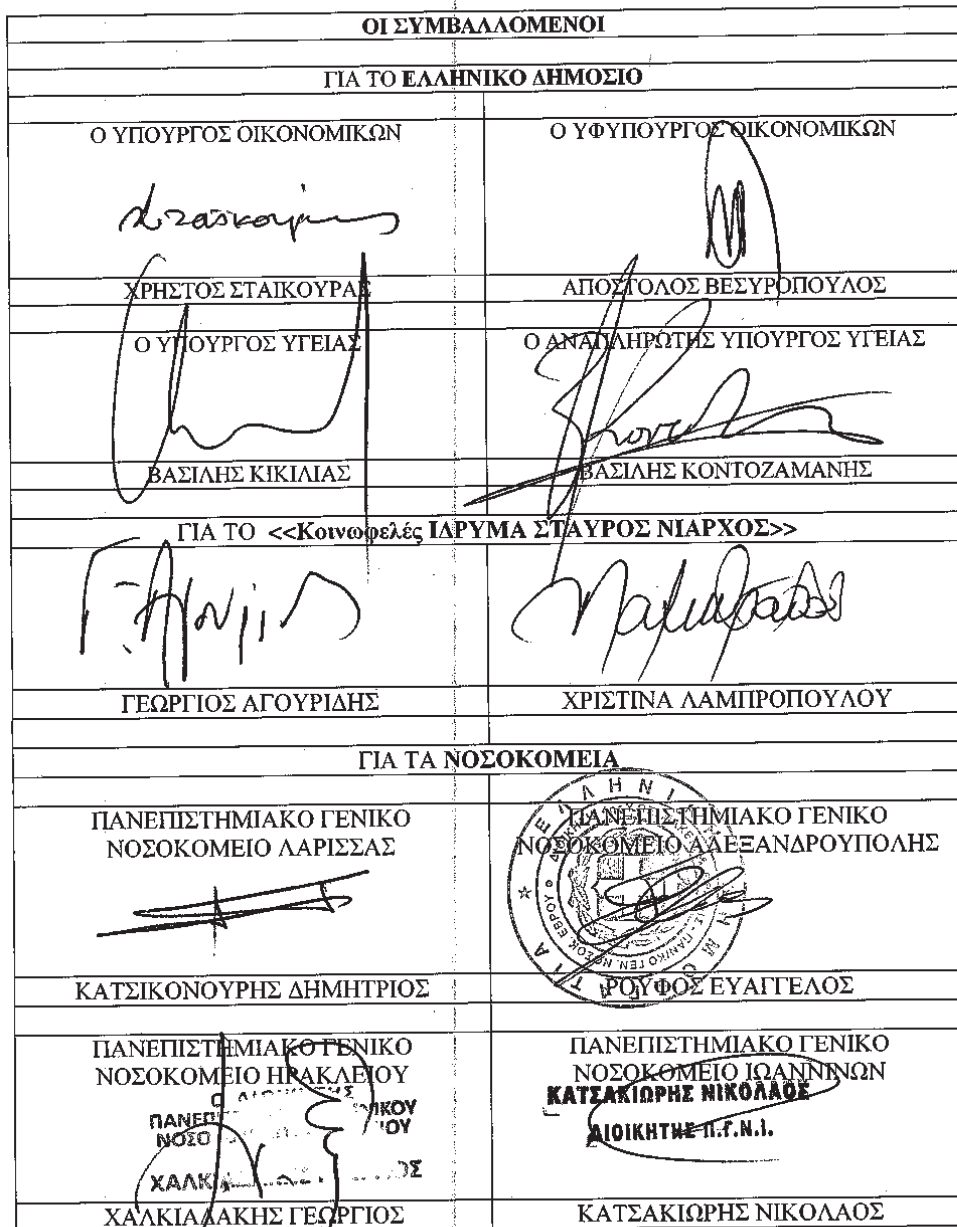 ΟΙ ΣΥΜΒΑΛΛΟΜΕΝΟΙ
ΓΙΑ ΤΟ ΕΛΛΗΝΙΚΟ ΔΗΜΟΣΙΟ
Ο ΥΠΟΥΡΓΟΣ ΟΙΚΟΝΟΜΙΚΩΝ
Ο ΥΦΥΠΟΥΡΓΟΣ ΟΙΚΟΝΟΜΙΚΩΝ
ΧΡΗΣΤΟΣ ΣΤΑΙΚΟΥΡΑΣ
ΑΠΟΣΤΟΛΟΣ ΒΕΣΥΡΟΠΟΥΛΟΣ
Ο ΥΠΟΥΡΓΟΣ ΥΓΕΙΑΣ
Ο ΑΝΑΠΛΗΡΩΤΗΣ ΥΠΟΥΡΓΟΣ ΥΓΕΙΑΣ
ΒΑΣΙΛΗΣ ΚΙΚΙΛΙΑΣ
ΒΑΣΙΛΗΣ ΚΟΝΤΟΖΑΜΑΝΗΣ
ΓΙΑ ΤΟ <<Κοινωφελές ΙΔΡΥΜΑ ΣΤΑΥΡΟΣ ΝΙΑΡΧΟΣ>>
ΓΕΩΡΓΙΟΣ ΑΓΟΥΡΙΔΗΣ
ΧΡΙΣΤΙΝΑ ΛΑΜΠΡΟΠΟΥΛΟΥ
ΓΙΑ ΤΑ ΝΟΣΟΚΟΜΕΙΑ
ΠΑΝΕΠΙΣΤΗΜΙΑΚΟ ΓΕΝΙΚΟ
ΝΟΣΟΚΟΜΕΙΟ ΛΑΡΙΣΣΑΣ
ΠΑΝΕΠΙΣΤΗΜΙΑΚΟ ΓΕΝΙΚΟ
ΝΟΣΟΚΟΜΕΙΟ ΑΛΕΞΑΝΔΡΟΥΠΟΛΗΣ
ΚΑΤΣΙΚΟΝΟΥΡΗΣ ΔΗΜΗΤΡΙΟΣ
ΡΟΥΦΟΣ ΕΥΑΓΓΕΛΟΣ
ΠΑΝΕΠΙΣΤΗΜΙΑΚΟ ΓΕΝΙΚΟ
ΝΟΣΟΚΟΜΕΙΟ ΗΡΑΚΛΕΙΟΥ
ΠΑΝΕΠΙΣΤΗΜΙΑΚΟ ΓΕΝΙΚΟ
ΝΟΣΟΚΟΜΕΙΟ ΙΩΑΝΝΙΝΩΝ
ΚΑΤΣΑΚΙΩΡΗΣ ΝΙΚΟΛΑΟΣ
ΔΙΟΙΚΗΤΗΣ Π.Γ.Ν.Ι.
ΧΑΛΚΙΑΔΑΚΗΣ ΓΕΩΡΓΙΟΣ
ΚΑΤΣΑΚΙΩΡΗΣ ΝΙΚΟΛΑΟΣ